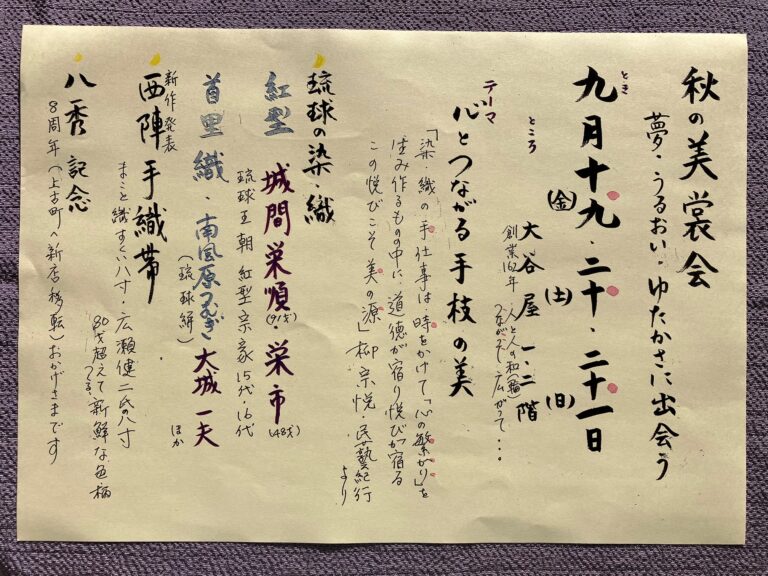 秋の美裳会
夢・うるおい・ゆたかさに出会う
とき
九月十九・二十・二十一日
(金) (土) (日)
ところ
大谷屋 一、二階
創業162年 人と人の和輪
つながって 広がって・・・
テーマ
心とつながる手枝の美
「染・織の手仕事は、時をかけて「心の繋がり」を
生み作るものの中に、道徳が宿り悦びが宿る
この悦びこそ美の源」柳宗悦・民藝紀行
より
琉球の染・織
紅型 城間栄順・栄市
(91才) (48才)
琉球王朝紅型宗家15代・16代
首里織・南風原つむぎ 大城一夫
(琉球絣) ほか
新作発表
西陣手織帯
まこと織すくい八寸・広瀬健二氏八寸
80才超えて新鮮な色柄
八秀記念
8周年(上古町へ新店移転)おかげさまです